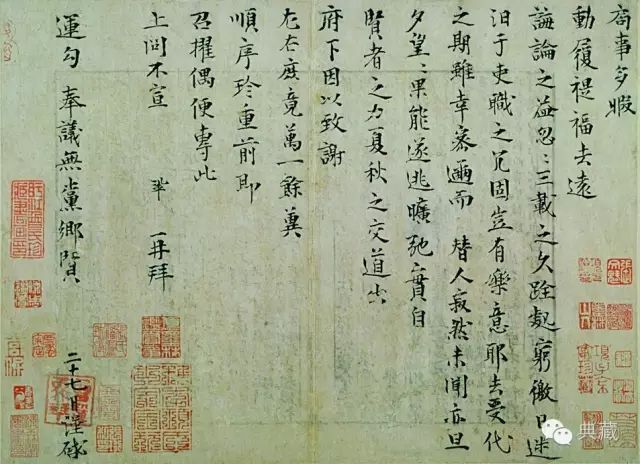 局事多暇
動履禔福去遠
誨論之益忽〻三載之久跧處窮徼日迷
汩于吏職之冗固豈有樂意耶去受代
之期雖幸密邇而替人寂然未聞亦旦
夕望〻果能遂逃曠弛實自
賢者之力夏秋之交道出
府下因以致謝
左右庶竟萬一餘冀
順序珍重前即
召擢偶便專此
上問不宣 鞏 再拜
運勾奉議無黨鄉賢 二十七日謹啓
典藏